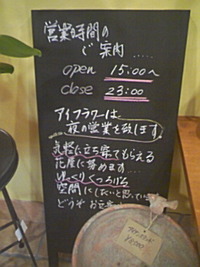 営業時間の
ご案内...
open 15:00〜
close 23:00
アイフラワーは
夜の営業を致します。
気軽に立ち寄てもらえる
花屋に努めます...
ゆっくりくつろげる
空間にしたいと思っています
どうぞお立寄